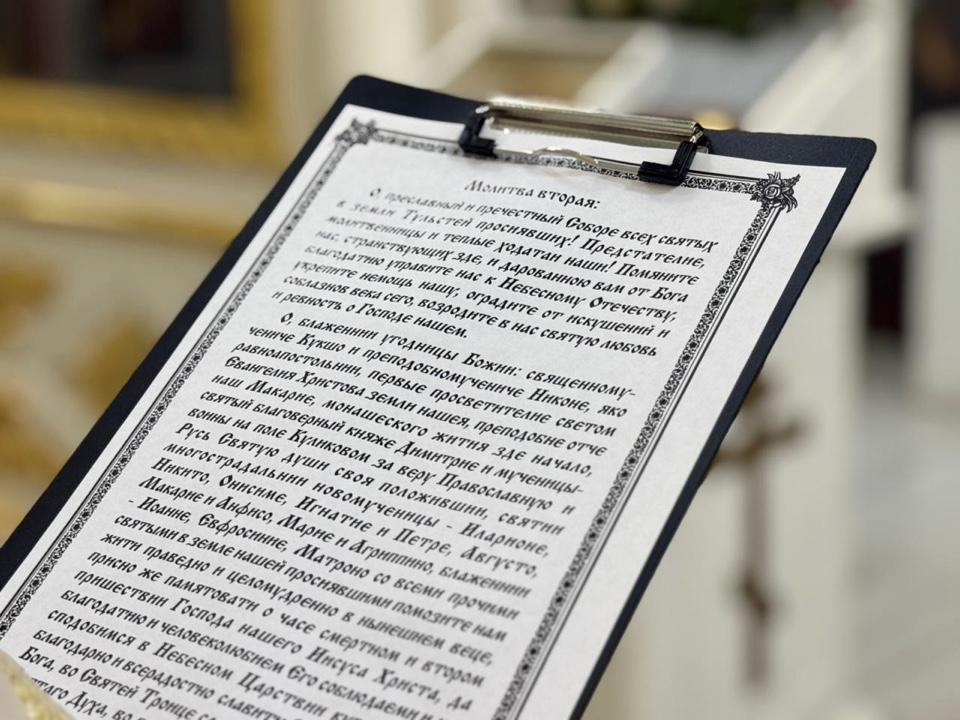 Молитва вторая:
О преславный и пречестный Соборе всех святых
в земли Тульстей просиявших! Предстателие,
молитвенницы и теплые ходатаи наши! Помяните
нас, странствующих зде, и дарованною вам от Бога
благодатию управите нас к Небесному Отечеству,
укрепите немощь нашу, оградите от искушений и
соблазнов века сего, возродите в нас святую любовь
и ревность о Господе нашем.
О, блаженнии угодницы Божии: священному-
чениче Кукшо и преподобномучениче Никоне, яко
равноапостольнии, первые просветителие светом
Евангелия Христова земли нашея, преподобне отче
наш Макарие, монашеского жития зде начало,
святый благоверный княже Димитрие и мученицы-
воины на поле Куликовом за веру Православную и
Русь Святую души своя положившии, святии
многострадальнии новомученицы - Иларионе,
Никито, Онисиме, Игнатие и Петре, Августо,
Макарие и Анфисо, Марие и Агриппино, блаженнии
- Иоанне, Евфросиние, Матроно со всеми прочими
святыми в земле нашей просиявшими помозите нам
жити праведно и целомудренно в нынешнем веце,
присно же памятовати о часе смертном и втором
пришествии Господа нашего Иисуса Христа, да
благодатию и человеколюбием Его соблюдаеми и
сподобимся в Небесном Царствии
благодарно и всерадостно славити
Бога, во Святей Троице
Духа, во